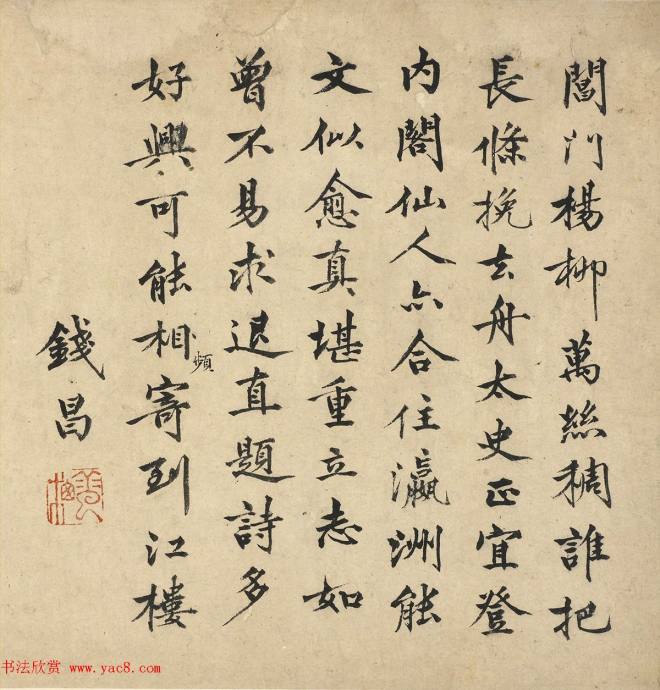 閶門楊柳萬絲稠誰把
長條挽去舟太史正宜登
內閣仙人亦合住瀛洲能
文似愈真堪重立志如
曾不易求退直題詩多
好興可能相寄到江樓
頻
錢昌
书法欣赏 www.yac8.com